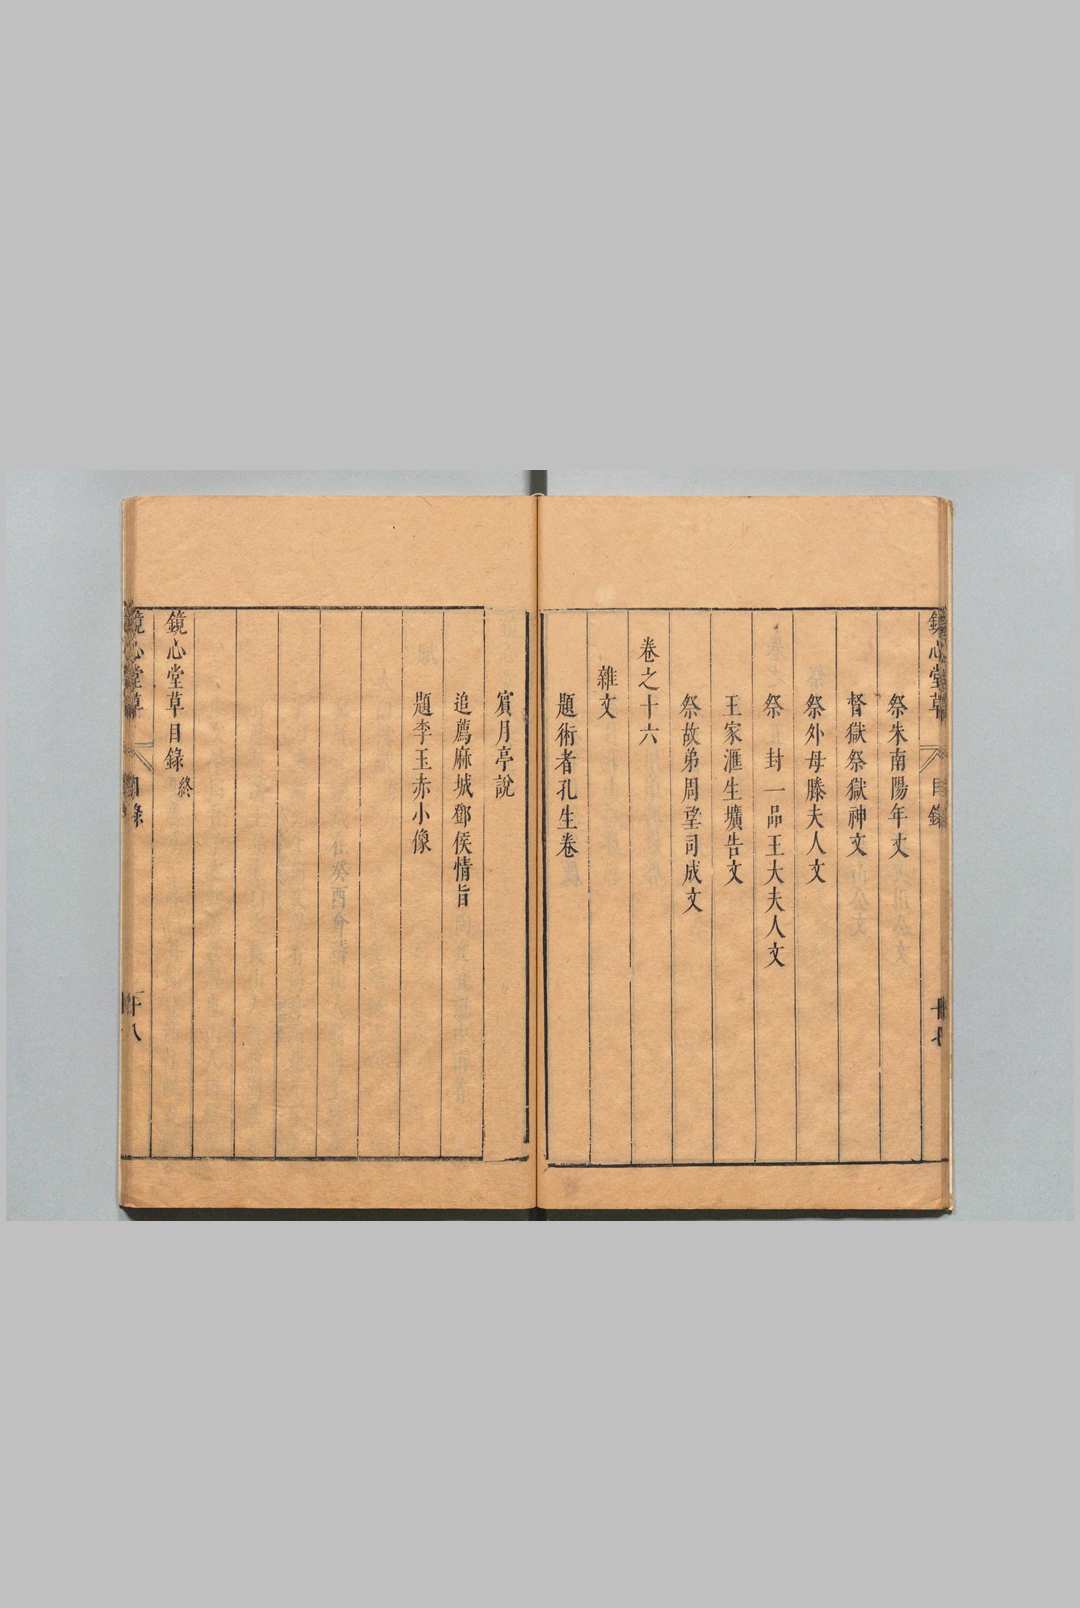 祭朱南陽年丈
督獄祭獄神文
祭外母滕夫人文
祭　封一品王大夫人文
王家滙生壙告文
祭故弟周望司成文
卷之十六
雜文
題術者孔生卷
賓月亭說
追薦麻城鄧侯情旨
題李玉赤小像
鏡心堂草目錄終
鏡心堂草
目錄